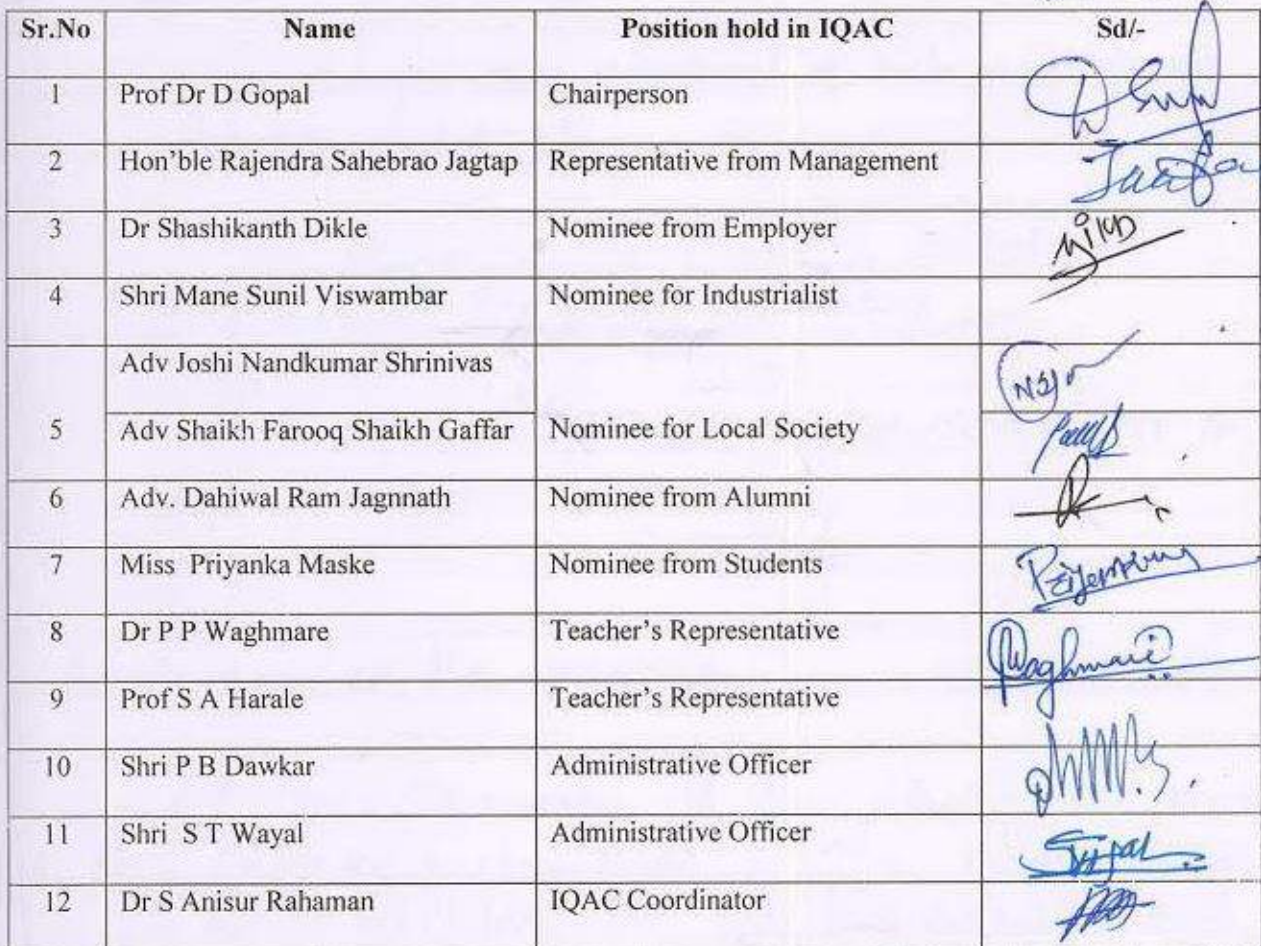 Sr.No Name Position hold in IQAC Sd/-
1 Prof Dr D Gopal Chairperson
2 Hon'ble Rajendra Sahebrao Jagtap Representative from Management
3 Dr Shashikanth Dikle Nominee from Employer
4 Shri Mane Sunil Viswambar Nominee for Industrialist
Adv Joshi Nandkumar Shrinivas
5 Adv Shaikh Farooq Shaikh Gaffar Nominee for Local Society
6 Adv. Dahiwal Ram Jagnnath Nominee from Alumni
7 Miss Priyanka Maske Nominee from Students
8 Dr P P Waghmare Teacher's Representative Waghmare
9 Prof S A Harale Teacher's Representative
10 Shri P B Dawkar Administrative Officer
11 Shri S T Wayal Administrative Officer
12 Dr S Anisur Rahaman IQAC Coordinator